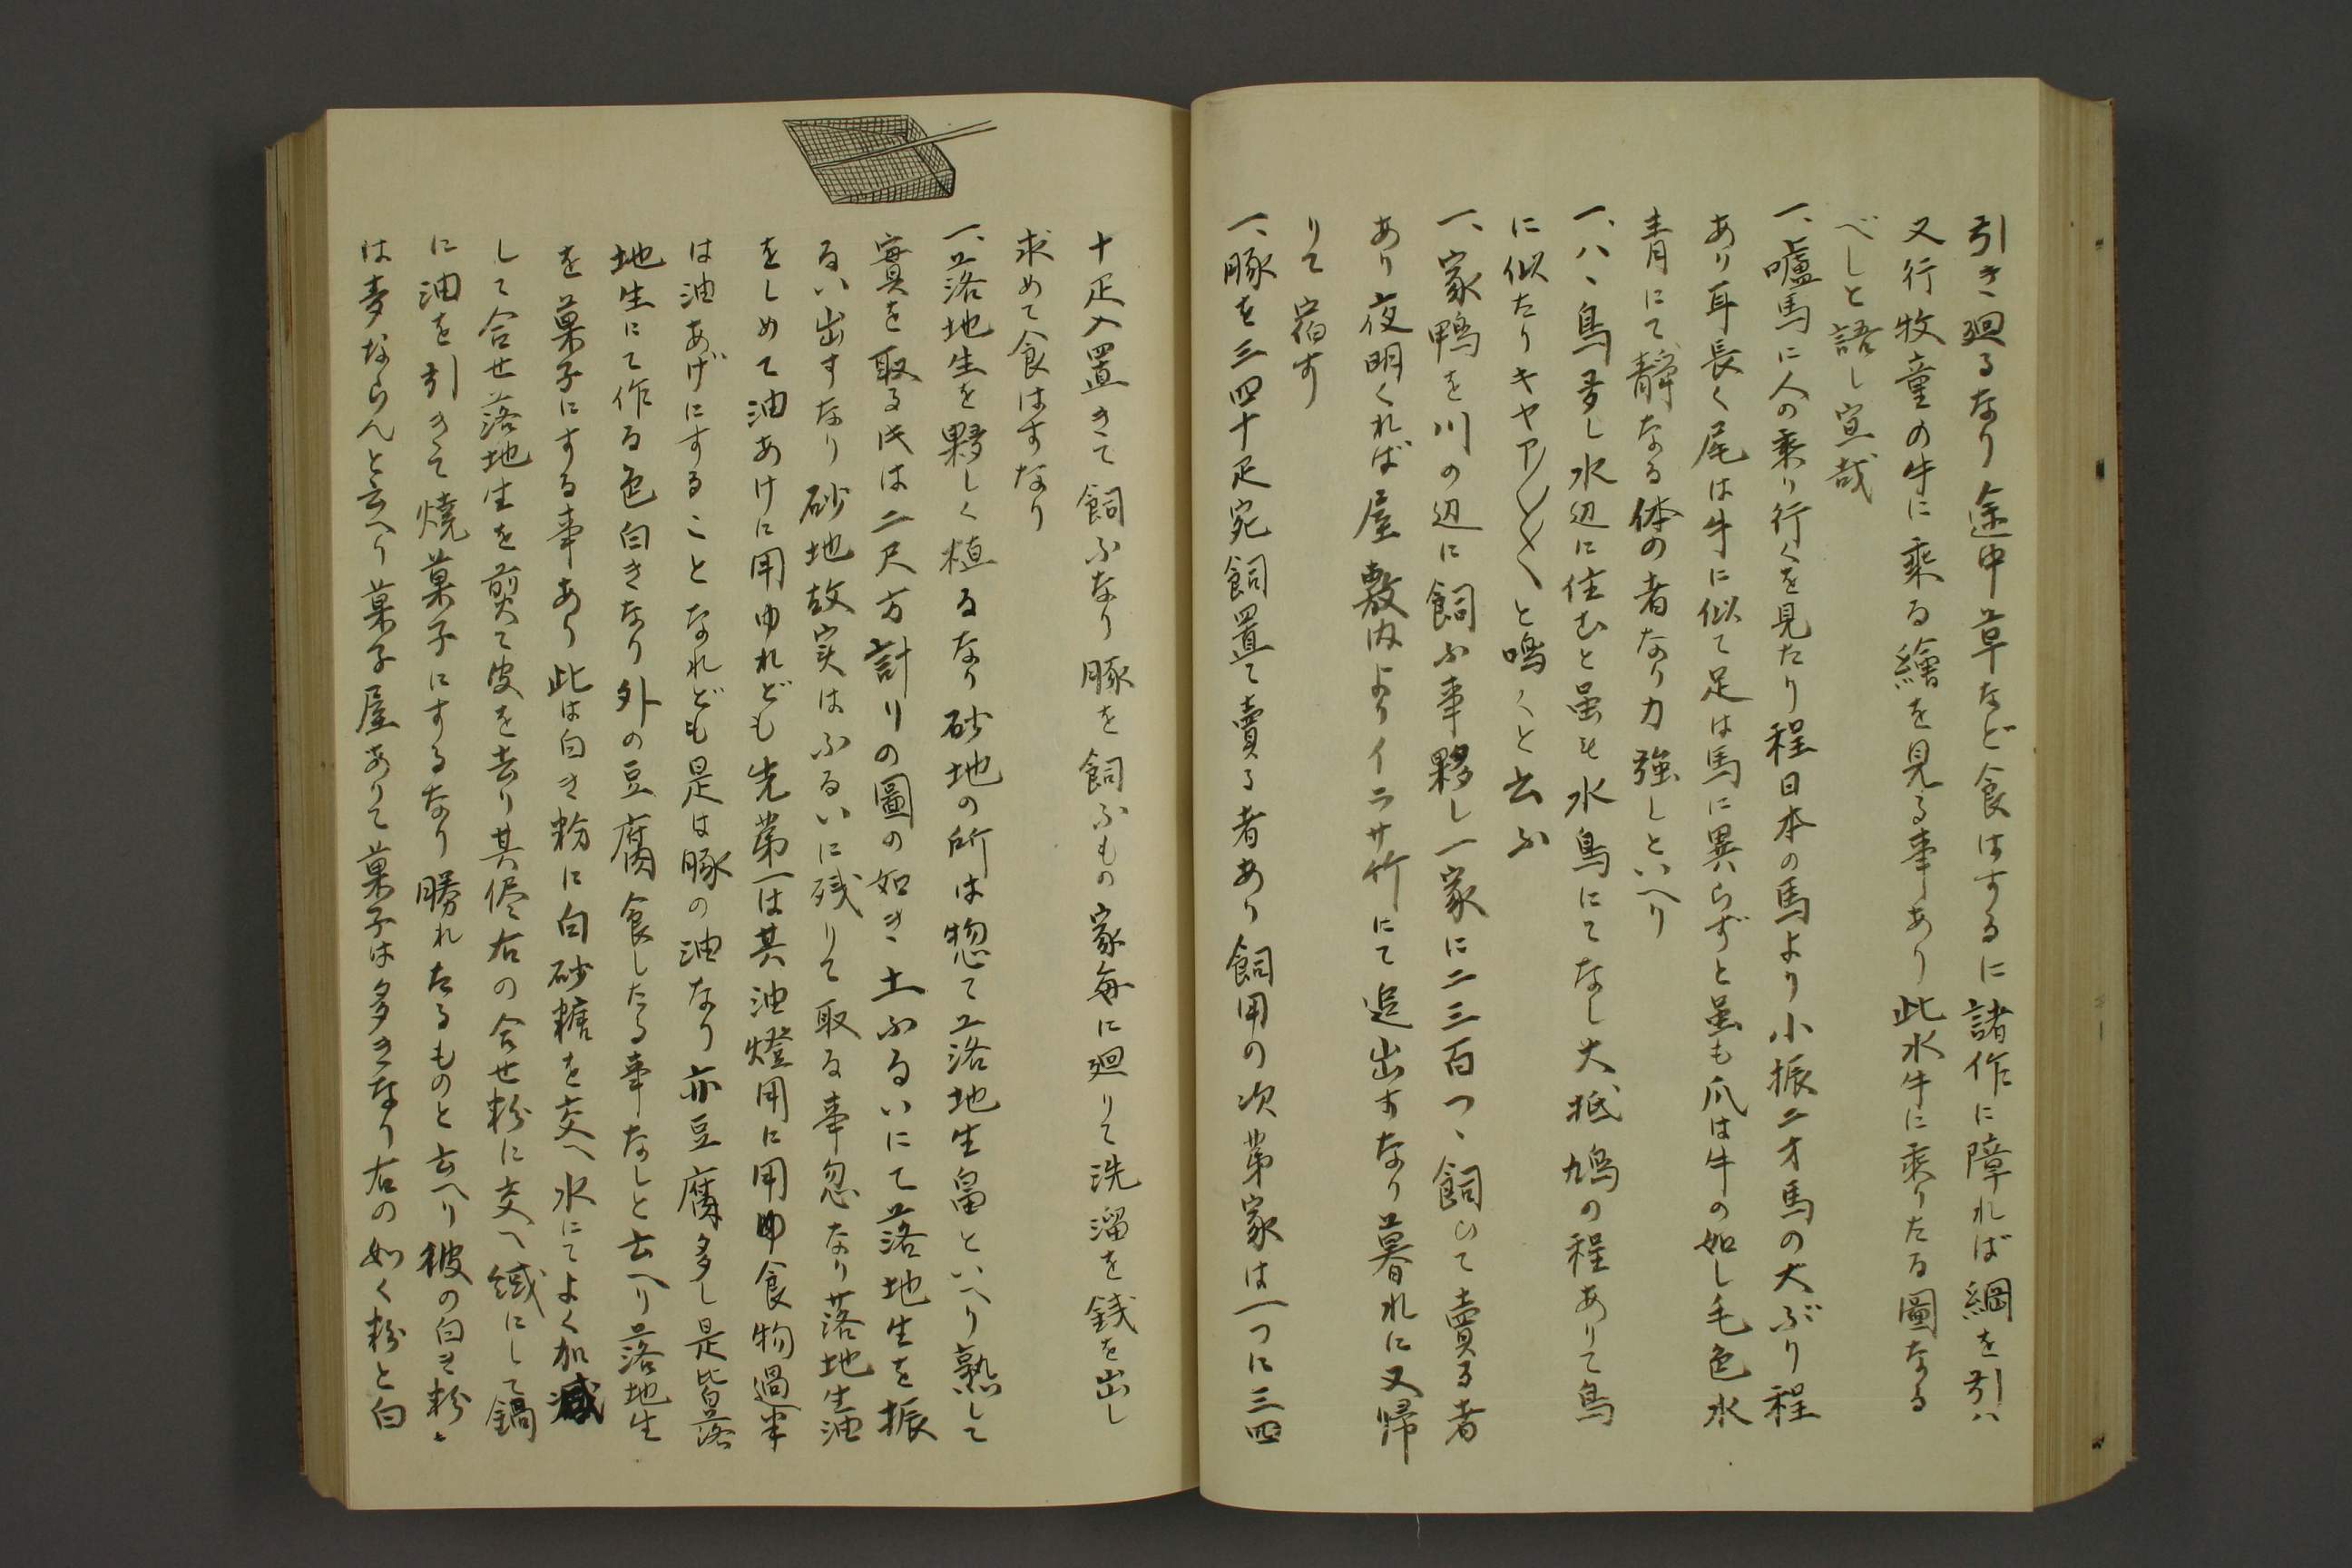 引き廻るなり途中草など食はするに諸作に障れば綱を引ハ
又行牧童の牛に乗る繪を見る事あり此水牛に乗りたる圖なる
べしと語し宣哉
一、嚧馬に人の乗り行くを見たり程日本の馬より小振二才馬の大ぶり程
あり耳長く尾は牛に似て足は馬に異らずと虽も爪は牛の如し毛色水
青にて静なる体の者なり力強しといへり
一、八、鳥多し水辺に住むと虽も水鳥にてなし大抵鳩の程ありて烏
に似たりキヤア〳〵〳〵と鳴くと云ふ
一、家鴨を川の辺に飼ふ事夥し一家に二三百つゝ飼ひて賣る者
あり夜明くれば屋敷内よりイニサ竹にて追出すなり暮れに又帰
りて宿す
一、豚を三四十疋宛飼置て賣る者あり飼用の次第家は一つに三四
十疋入置きて飼ふなり豚を飼ふもの家毎に廻りて洗溜を銭を出し
求めて食はすなり
一、落地生を夥しく植るなり砂地の所は惣て落地生畠といへり熟して
實を取る氏は二尺方計りの圖の如き土ふるいにて落地生を振
るい出すなり砂地故実はふるいに残りて取る事忽なり落地生油
をしめて油あけに用ゆれども先第一は其油燈用に用ゆ食物過半
は油あげにすることなれども是は豚の油なり亦豆腐多し是皆落
地生にて作る色白きなり外の豆腐食したる事なしと云へり落地生
を菓子にする事あり此は白き粉に白砂糖を交へ水にてよく加減
して合せ落地生を煎て皮を去り其侭右の合せ粉に交へ緘にして鍋
に油を引きて焼菓子にするなり勝れたるものと云へり彼の白き粉ゝ
は麦ならんと云へり菓子屋ありて菓子は多きなり右の如く粉と白